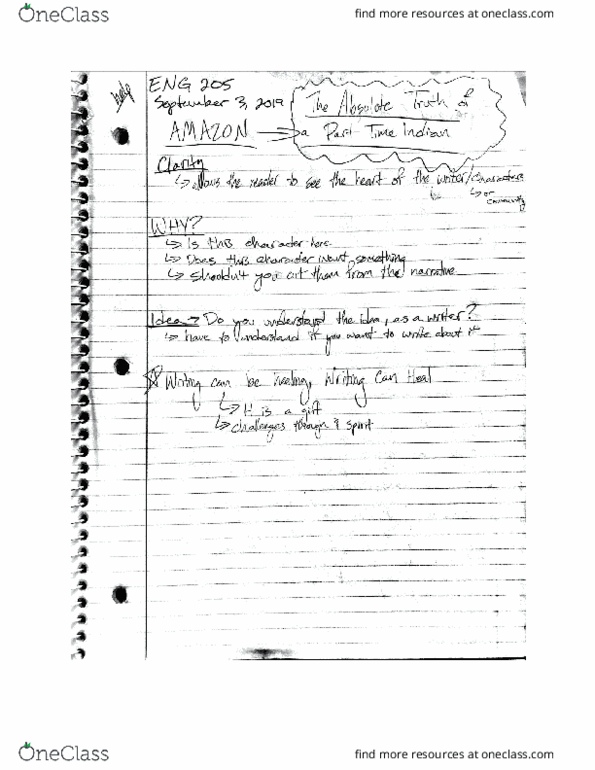 OneClass
find more resources at oneclass.com
help
ENG 205
September 3, 2019
The Absolute Truth of
AMAZON → a Part Time Indian
Clarity
↳ allows the reader to see the heart of the writer/characters
↳ or community
WHY?
↳ Is this character here
↳ Does this character want something
↳ Shouldn't you cut them from the narrative
Idea → Do you understand the idea, as a writer?
↳ have to understand it if you want to write about it
Writing can be healing, Writing Can Heal
↳ It is a gift
↳ challenges through & spirit
OneClass
find more resources at oneclass.com